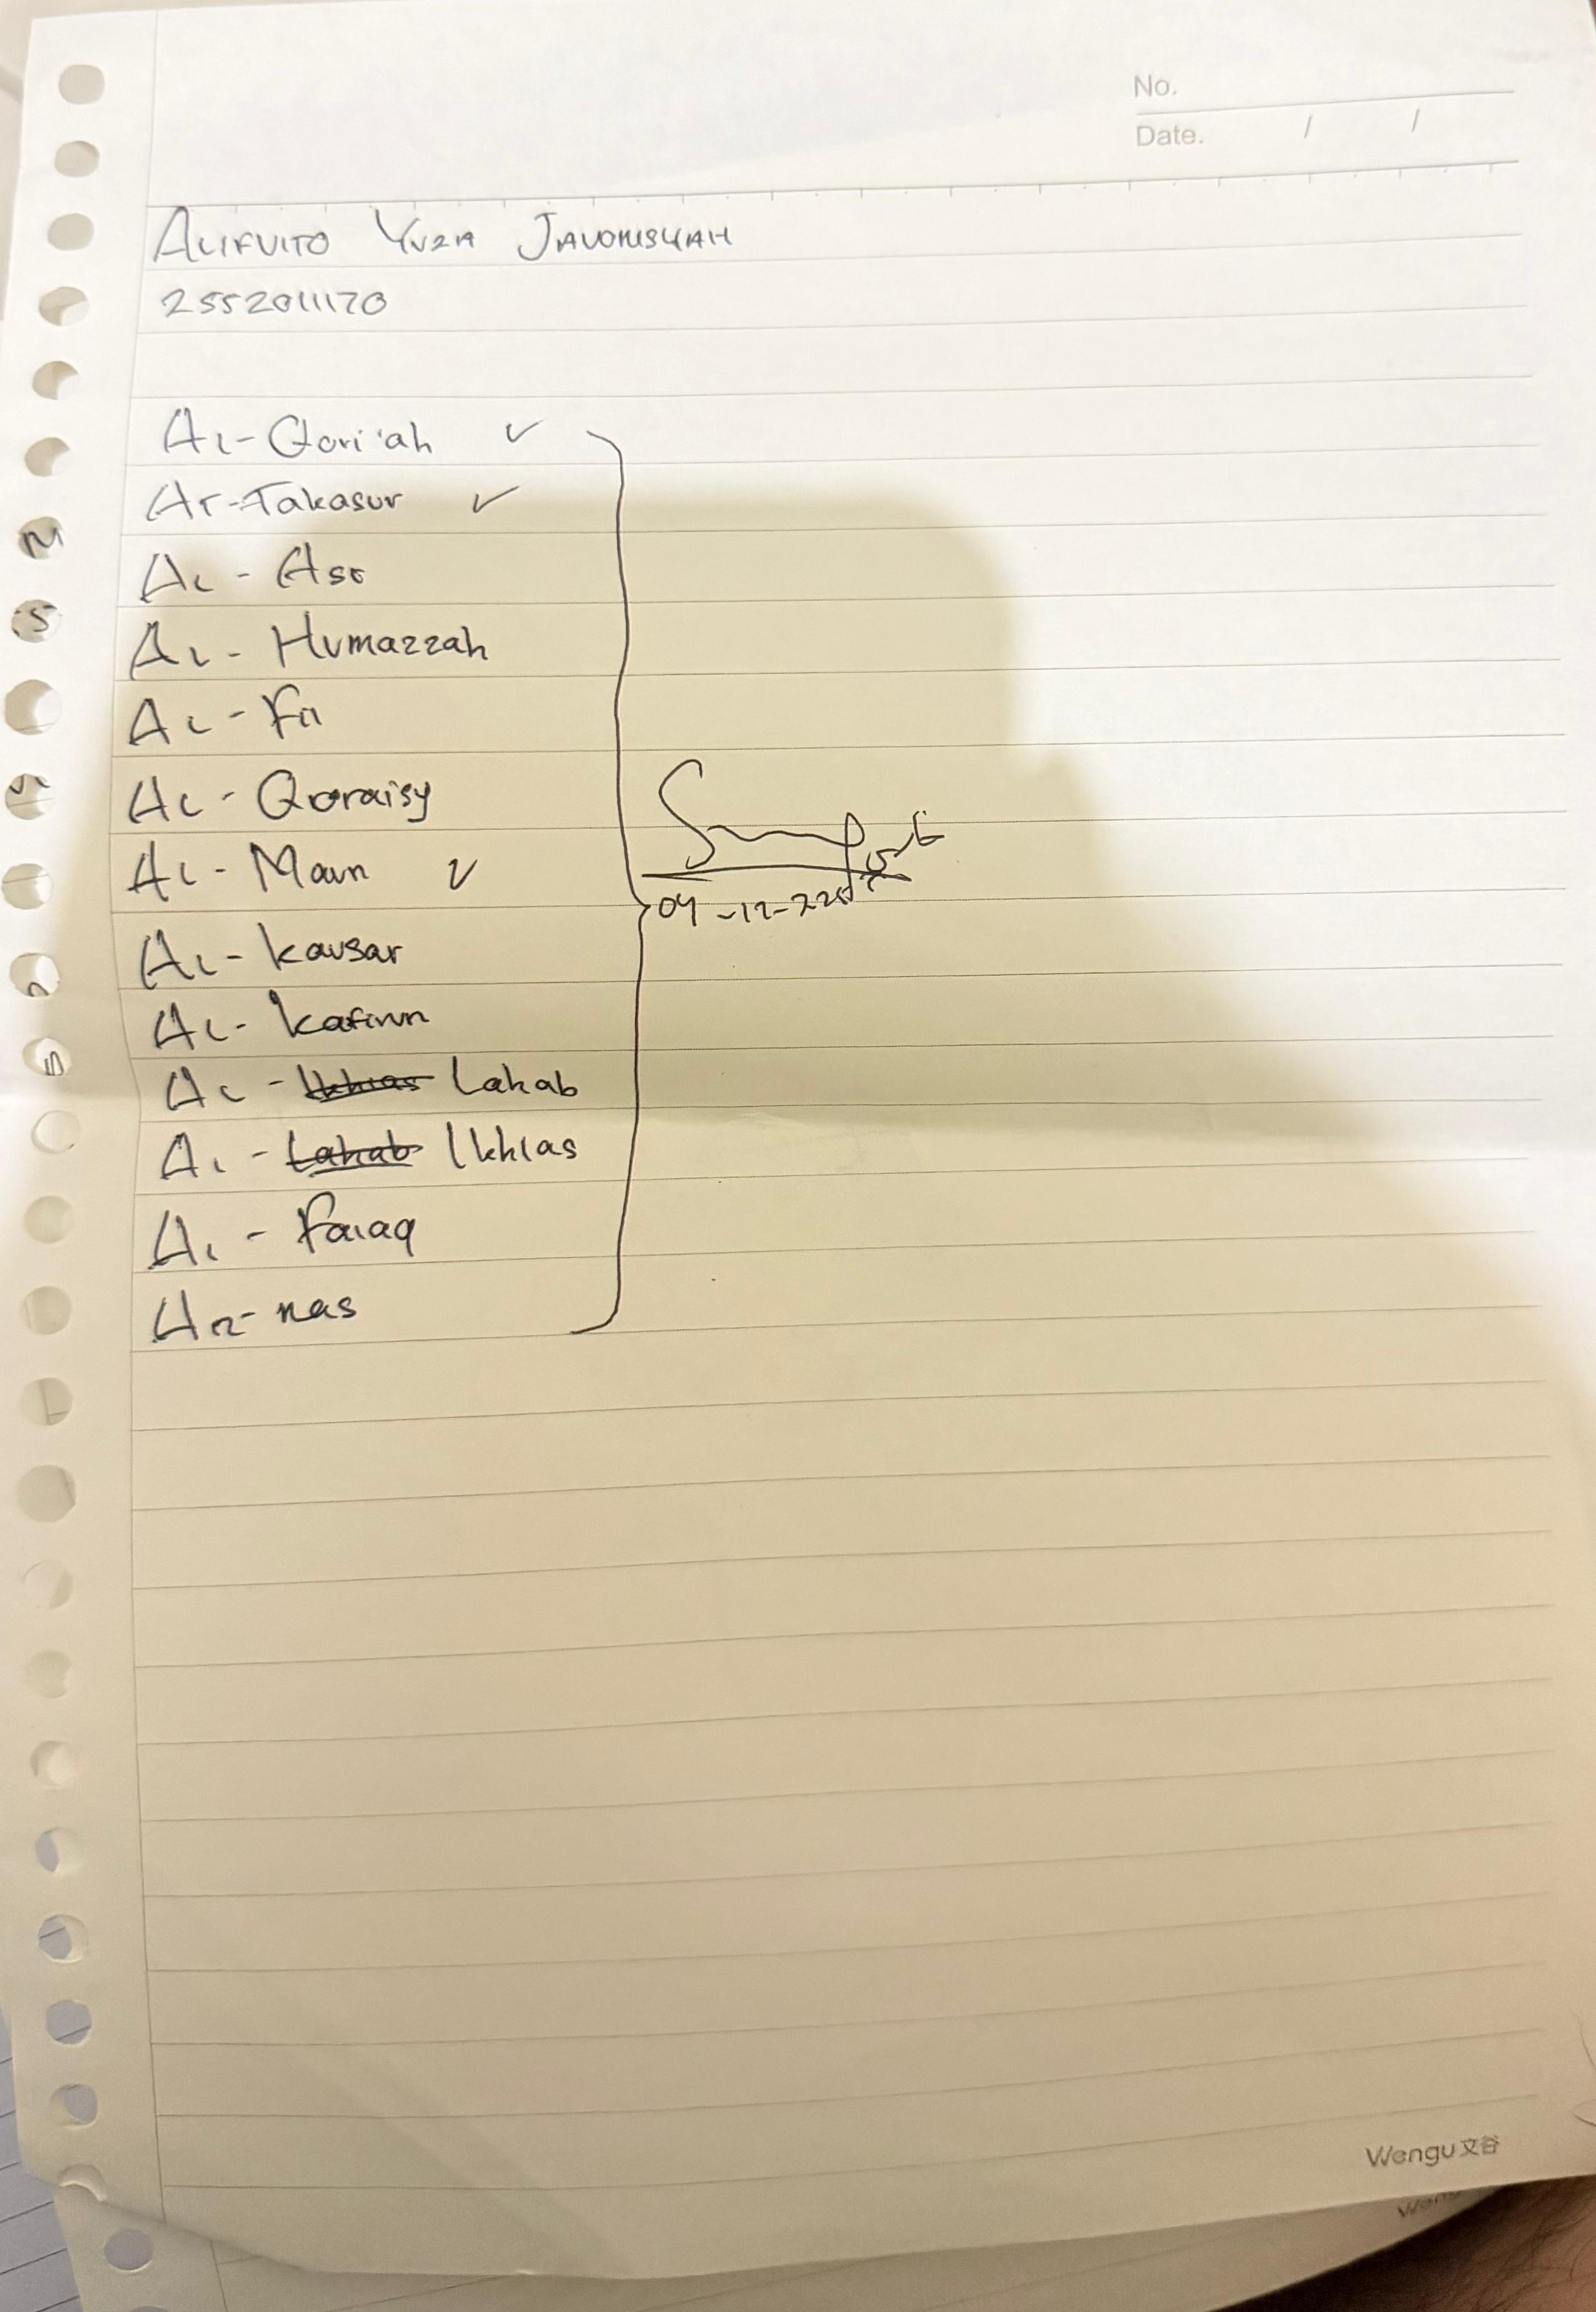 No.
Date. / /
ALIFVITO YUZA JAVONISYAH
2552011170
Al-Qori'ah ✓
At-Takasur ✓
Al - Asr
Al - Humazzah
Al - Fil
Al - Qoraisy
Al - Maun ✓
Al - kausar
Al - kafirun
Al - Ikhlas Lahab
Al - Lahab Ikhlas
Al - Falaq
An-nas
Wengu文谷